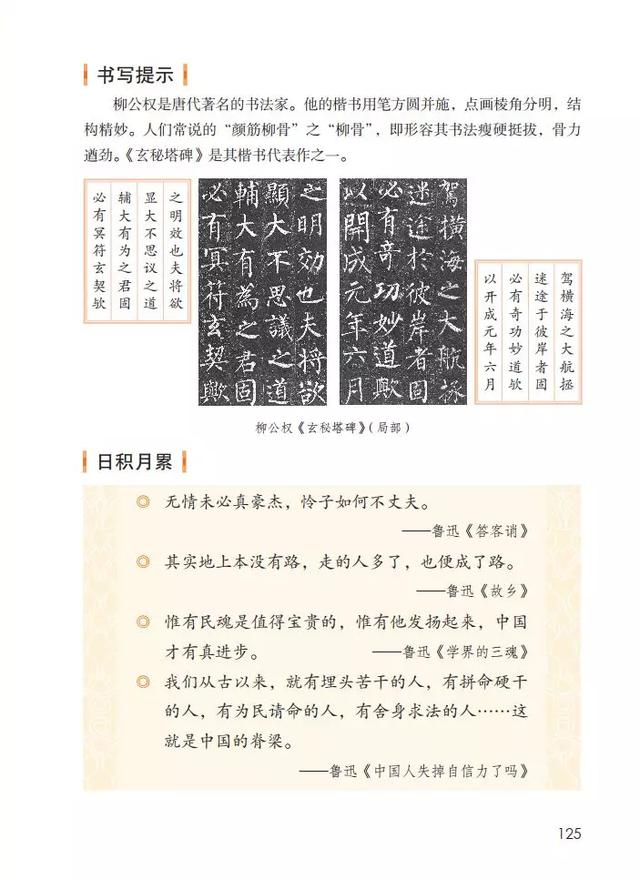 书写提示
柳公权是唐代著名的书法家。他的楷书用笔方圆并施，点画棱角分明，结
构精妙。人们常说的“颜筋柳骨”之“柳骨”，即形容其书法瘦硬挺拔，骨力
遒劲。《玄秘塔碑》是其楷书代表作之一。
驾横海之大航拯
迷途于彼岸者固
必有奇功妙道欤
以开成元年六月
駕橫海之大航拯
迷途於彼岸者固
必有奇功妙道歟
以開成元年六月
之明効也夫將欲
顯大不思議之道
輔大有為之君固
必有冥符玄契歟
之明效也夫将欲
显大不思议之道
辅大有为之君固
必有冥符玄契欤
柳公权《玄秘塔碑》（局部）
日积月累
◎ 无情未必真豪杰，怜子如何不丈夫。
——鲁迅《答客诮》
◎ 其实地上本没有路，走的人多了，也便成了路。
——鲁迅《故乡》
◎ 惟有民魂是值得宝贵的，惟有他发扬起来，中国
才有真进步。 ——鲁迅《学界的三魂》
◎ 我们从古以来，就有埋头苦干的人，有拼命硬干
的人，有为民请命的人，有舍身求法的人……这
就是中国的脊梁。
——鲁迅《中国人失掉自信力了吗》
125